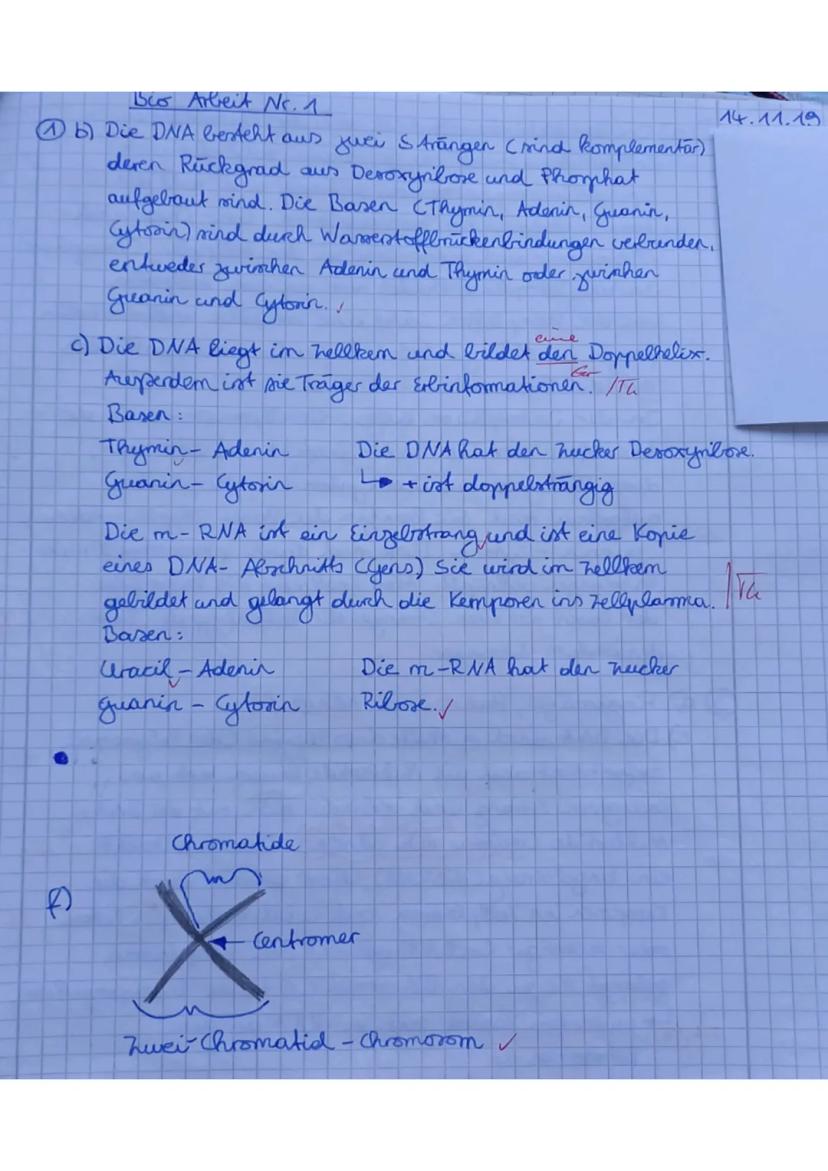 Bio Arbeit Nr. 1
14.11.19
① b) Die DNA besteht aus zwei Strängen (sind komplementär)
deren Rückgrad aus Desoxyribose und Phosphat
aufgebaut sind. Die Basen (Thymin, Adenin, Guanin,
Cytosin) sind durch Wasserstoffbrückenbindungen verbunden,
entweder zwischen Adenin und Thymin oder zwischen
Guanin und Cytosin.
eine
c) Die DNA liegt im Zellkern und bildet den Doppelhelix.
Außerdem ist sie Träger der Erbinformationen. Gr /Th
Basen:
Thymin - Adenin Die DNA hat den Zucker Desoxyribose.
Guanin - Cytosin ↳ + ist doppelsträngig
Die m-RNA ist ein Einzelstrang und ist eine Kopie
eines DNA-Abschnitts (Gens) Sie wird im Zellkern
gebildet und gelangt durch die Kernporen ins Zellplasma.
Basen:
Uracil - Adenin Die m-RNA hat den Zucker
Guanin - Cytosin Ribose. ✓
Chromatide
f)
← Centromer
Zwei-Chromatid-Chromosom ✓